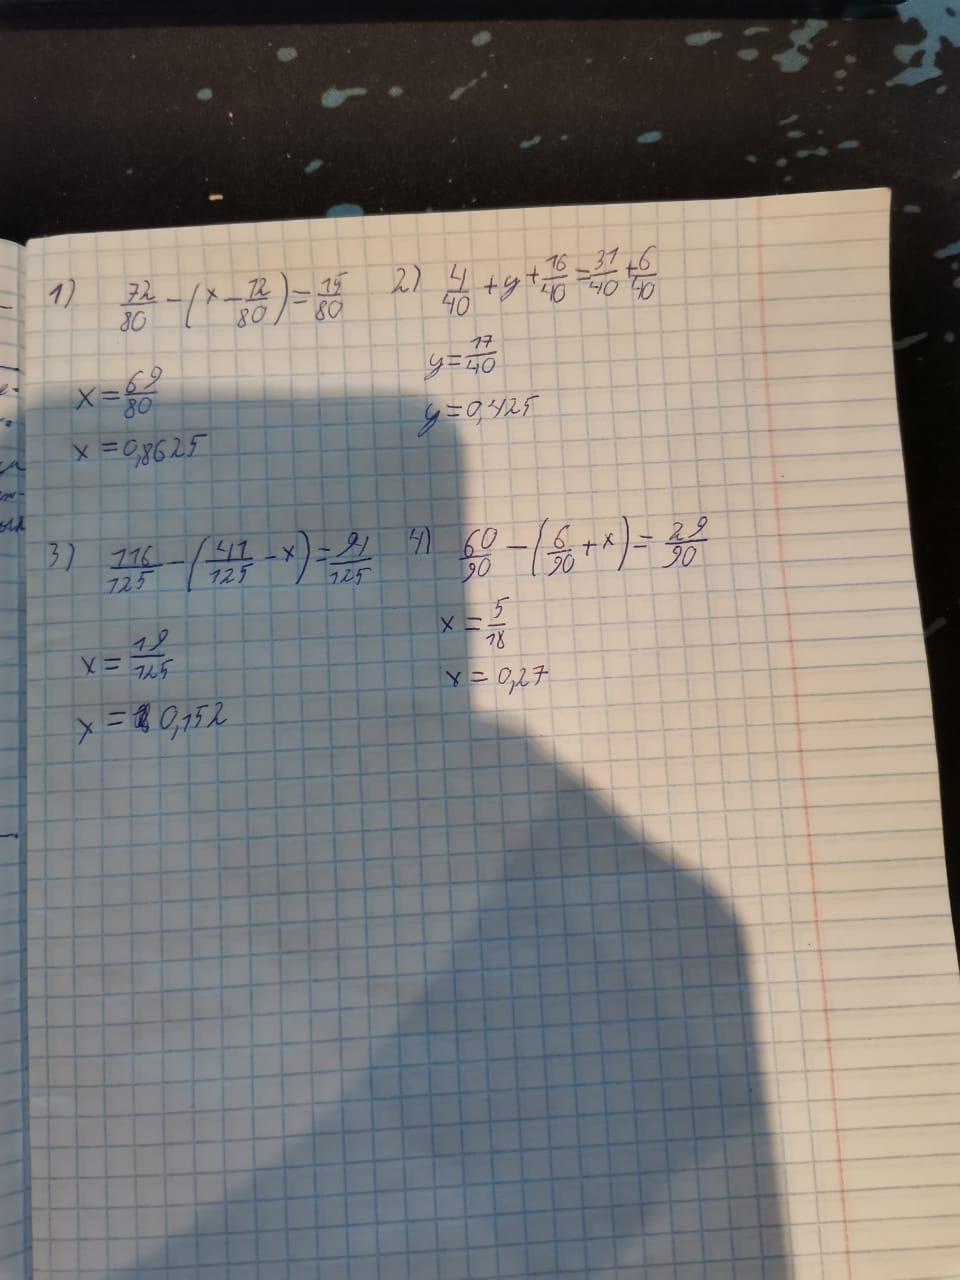 1) 72/80 - (x - 12/80) = 15/80
x = 69/80
x = 0,8625
2) 4/40 + y + 16/40 = 31/40 + 6/40
y = 17/40
y = 0,425
3) 116/125 - (41/125 - x) = 94/125
x = 19/125
x = 0,152
4) 60/90 - (6/90 + x) = 29/90
x = 5/18
x = 0,27